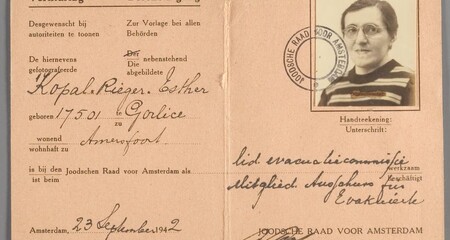 Desgewenscht bij
autoriteiten te toonen
Zur Vorlage bei allen
Behörden
De hiernevens
gefotografeerde
Der nebenstehend
Die
abgebildete
Kopal-Rieger-Esther
geboren 17501 te
zu Gorlice
wonend
wohnhaft zu
Amersfoort
is bij den Joodschen Raad voor Amsterdam als
ist beim
Amsterdam, 23 September 1942
JOODSCHE RAAD VOOR AMSTERDAM
Handteekening:
Unterschrift:
lid evacuatiecommissie
werkzaam
beschäftigt
Mitglied Ausschuss für
Evakuierte
JOODSCHE RAAD VOOR AMSTERDAM